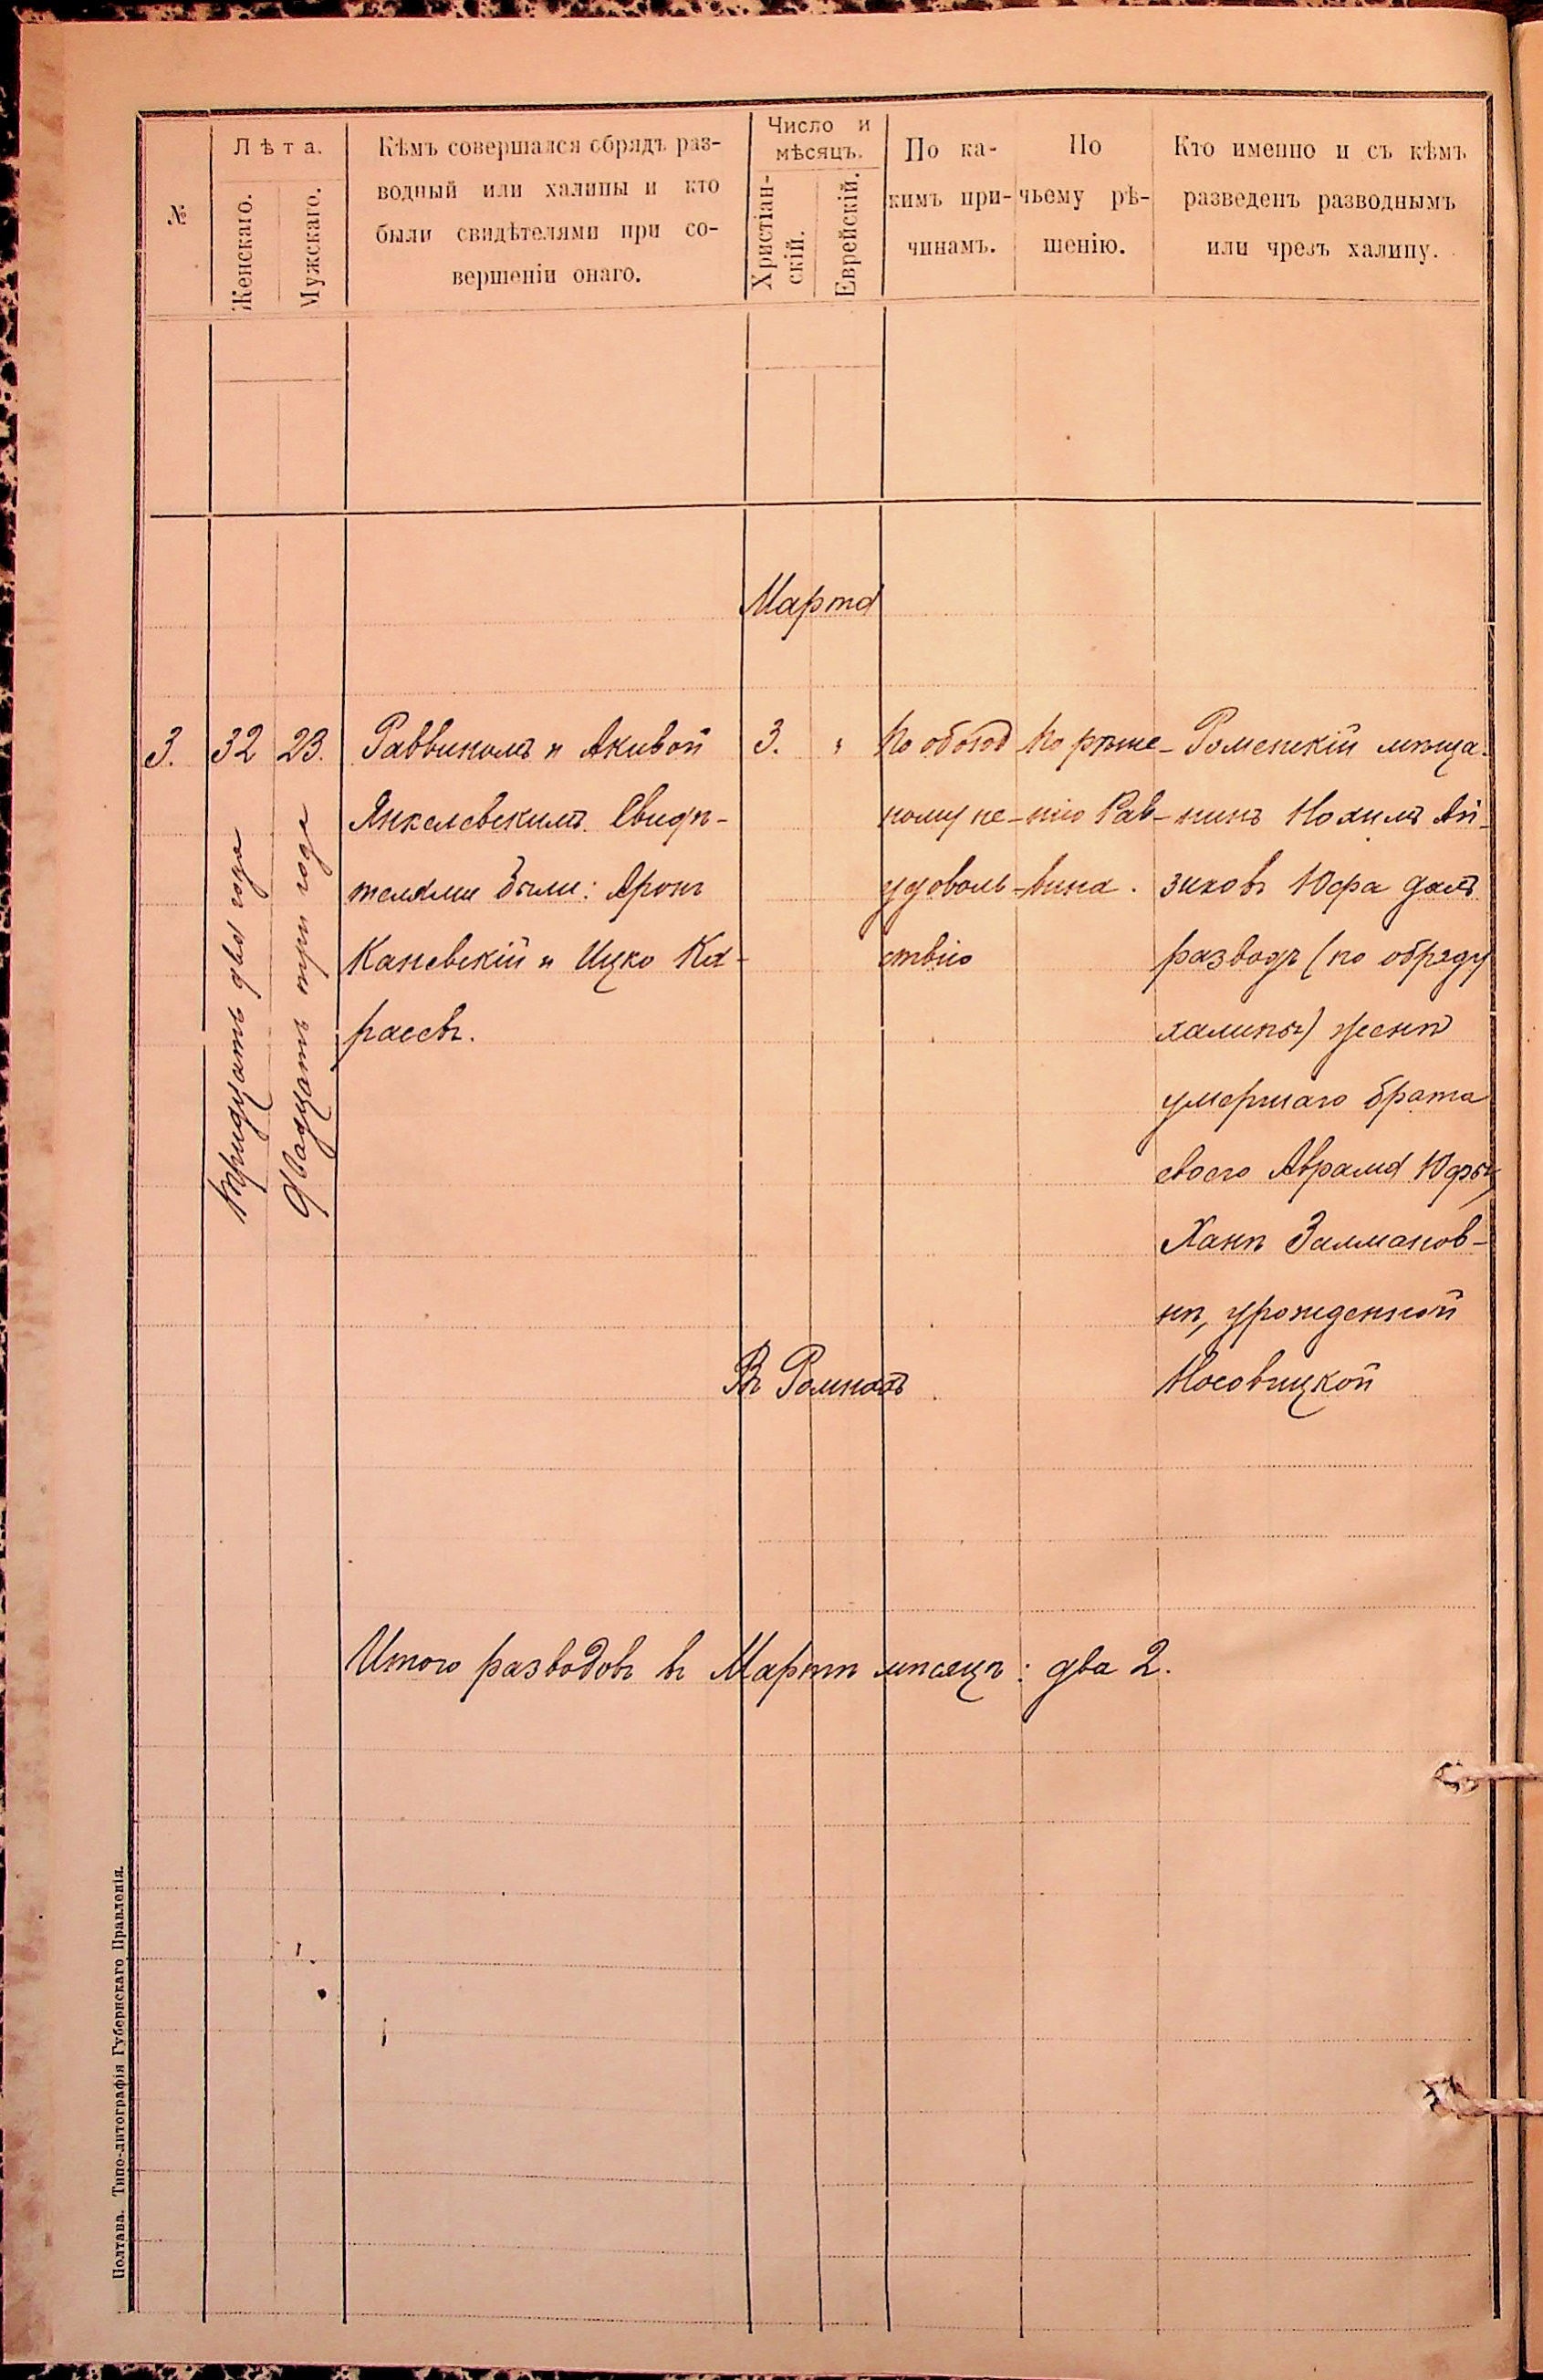 №
Лѣта.
Женскаго.
Мужскаго.
Кѣмъ совершался обрядъ раз-
водный или халицы и кто
были свидѣтелями при со-
вершеніи онаго.
Число и
мѣсяцъ.
Христіан-
скій.
Еврейскій.
По ка-
кимъ при-
чинамъ.
По
чьему рѣ-
шенію.
Кто именно и съ кѣмъ
разведенъ разводнымъ
или чрезъ халицу.
Марта
3.
32
тридцать два года
23.
двадцать три года
Раввиномъ Акивой
Янкелевскимъ. Свидѣ-
телями были: Аронъ
Каневскій и Ицко Ка-
рассъ.
3.
"
По обоюд
ному не-
удоволь-
ствію
По рѣше-
нію Рав-
вина.
Роменскій мѣща-
нинъ Нохимъ Ай-
зиковъ Юфа далъ
разводъ (по обряду
халицы) женѣ
умершаго брата
своего Аврама Юфы,
Ханѣ Залманов-
нѣ, урожденной
Носовицкой
Въ Ромнахъ
Итого разводовъ въ Мартѣ мѣсяцѣ: два 2.
Полтава. Типо-литографія Губернскаго Правленія.